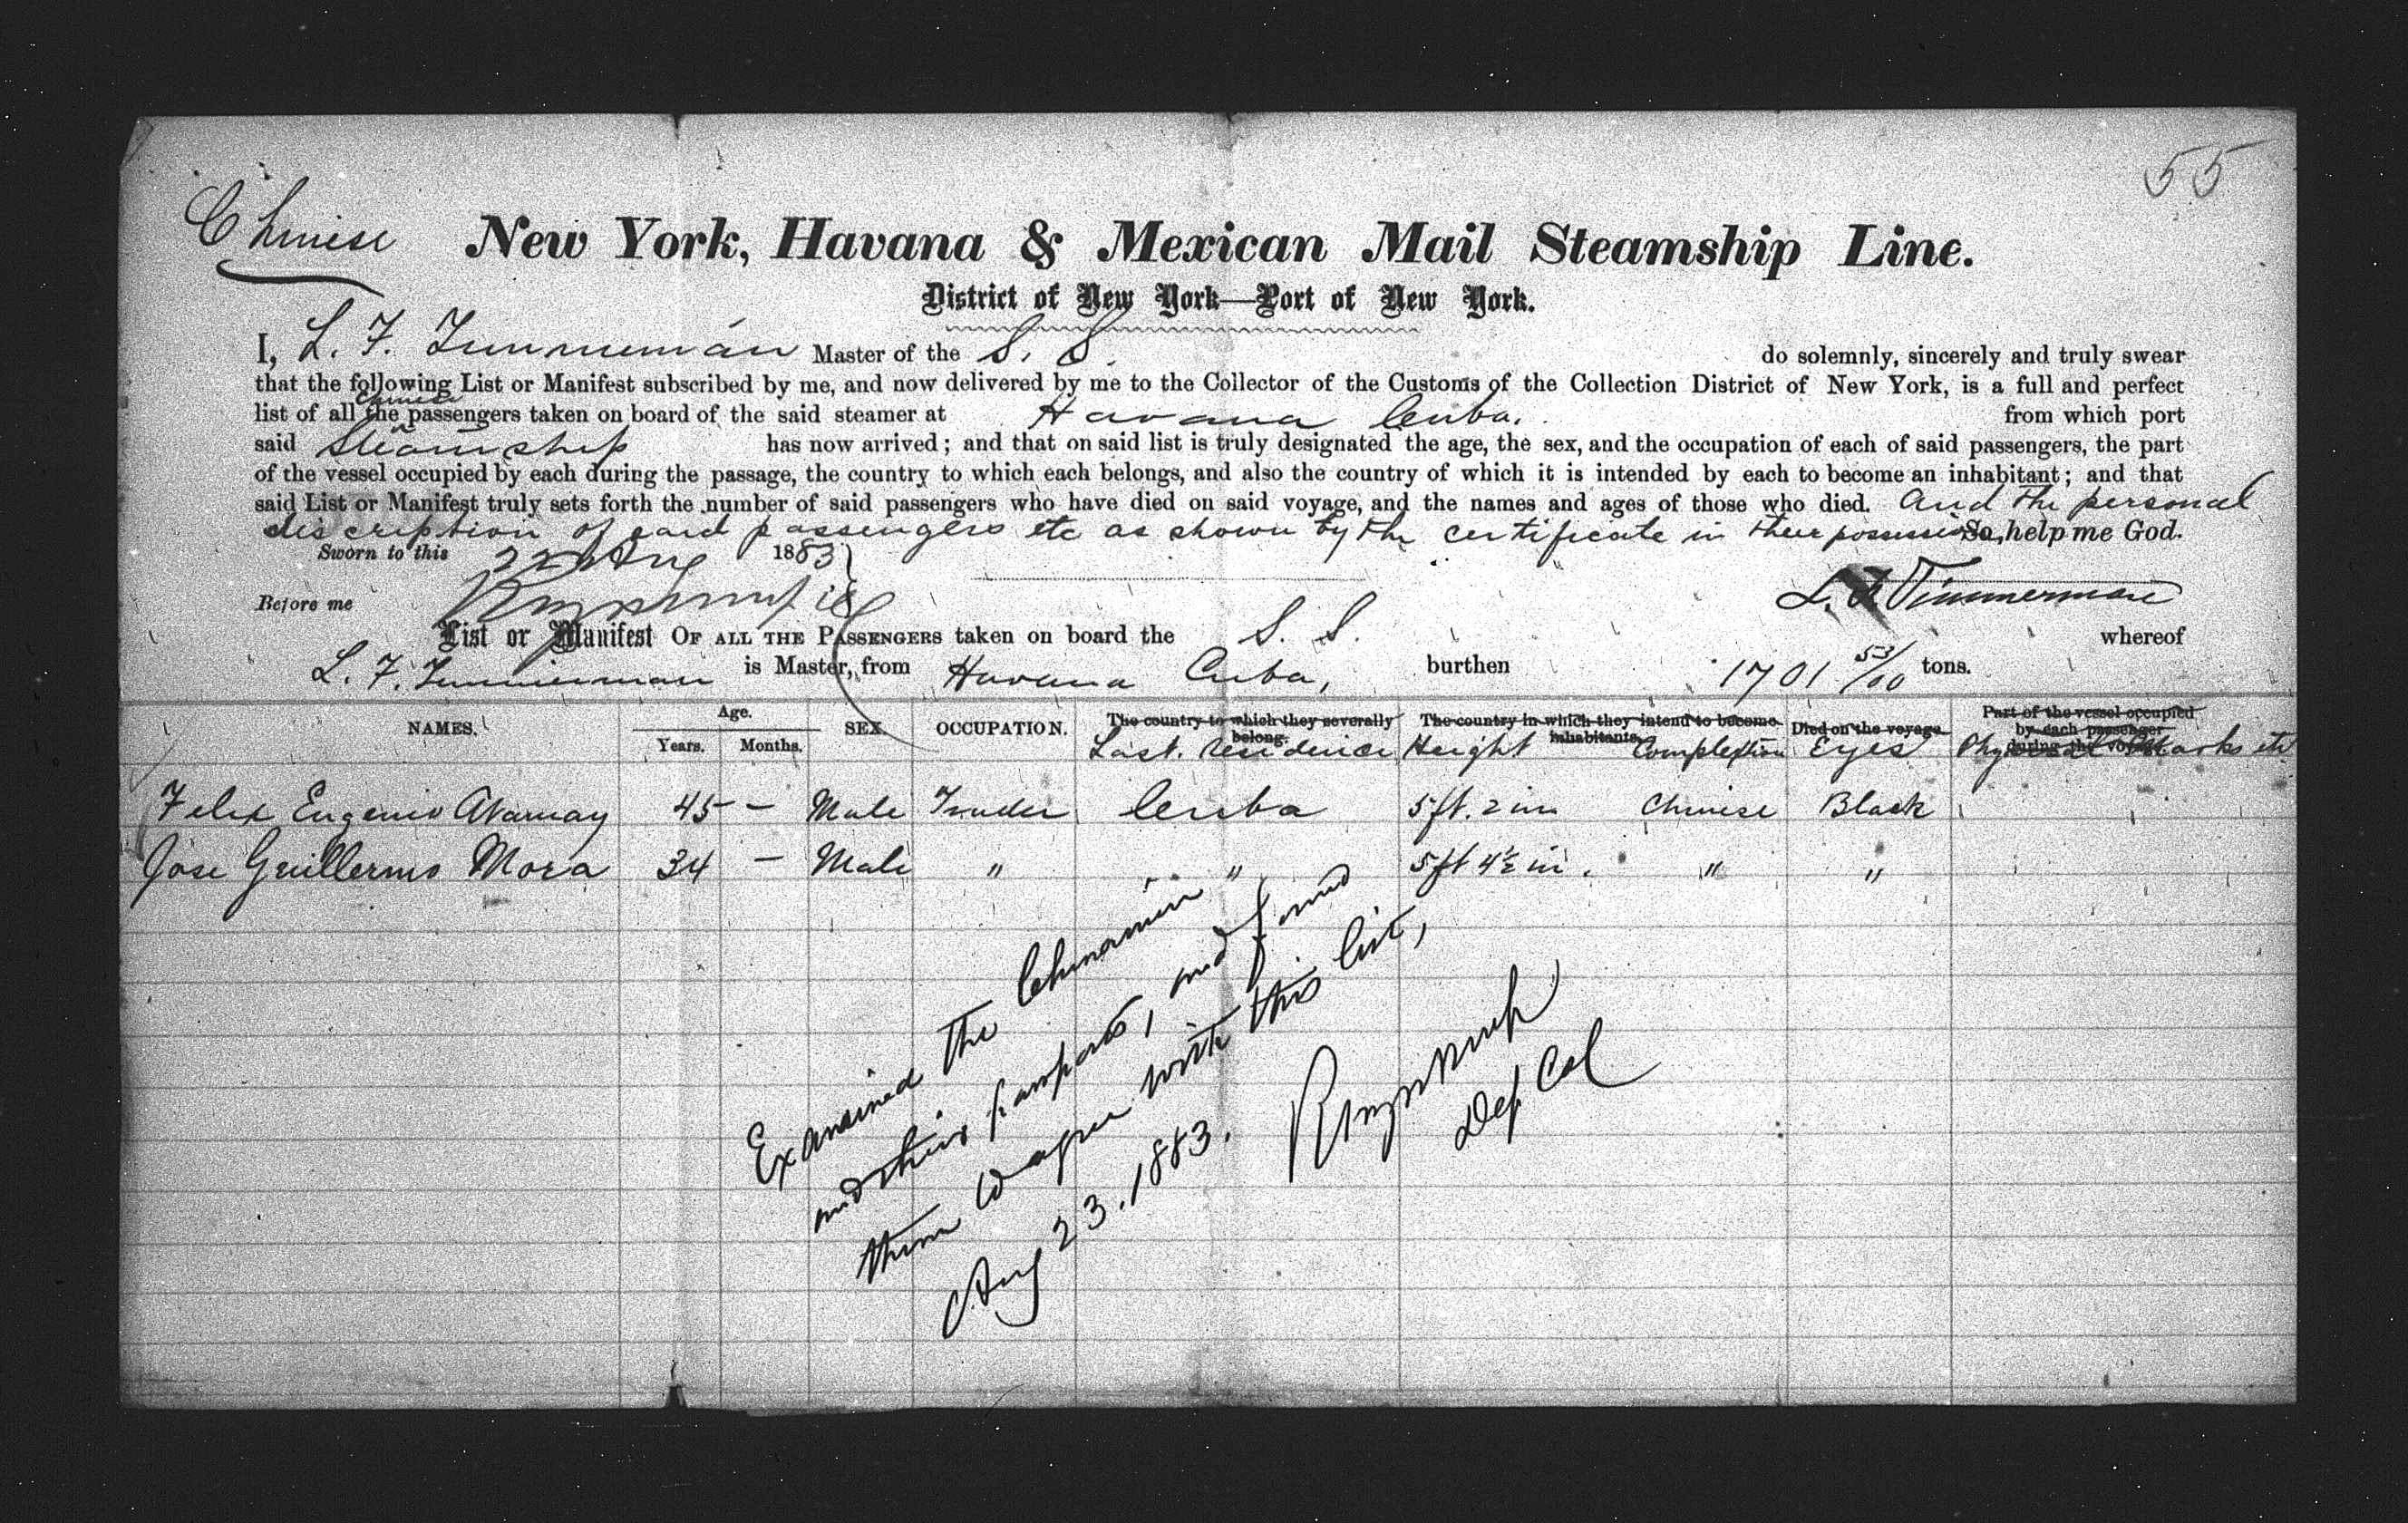 55
Chinese New York, Havana & Mexican Mail Steamship Line.
District of New York—Port of New York.
I, L. F. Timmerman Master of the S. S. do solemnly, sincerely and truly swear
that the following List or Manifest subscribed by me, and now delivered by me to the Collector of the Customs of the Collection District of New York, is a full and perfect
list of all the Chinese passengers taken on board of the said steamer at Havana Cuba. from which port
said Steamship has now arrived; and that on said list is truly designated the age, the sex, and the occupation of each of said passengers, the part
of the vessel occupied by each during the passage, the country to which each belongs, and also the country of which it is intended by each to become an inhabitant; and that
said List or Manifest truly sets forth the number of said passengers who have died on said voyage, and the names and ages of those who died. And the personal
discription of said passengers etc as shown by the certificate in their possession So help me God.
Sworn to this 22d Aug 1883
Before me L. F. Timmerman
List or Manifest OF ALL THE PASSENGERS taken on board the S. S. whereof
L. F. Timmerman is Master, from Havana Cuba, burthen 1701 53/100 tons.
NAMES. Age. Years. Months. SEX. OCCUPATION. The country to which they severally belong. The country in which they intend to become inhabitants. Died on the voyage. Part of the vessel occupied by each passenger during the voyage.
Last. Residence Height Complextion Eyes Physical Marks etc
Felix Eugenio 45 - Male Trader Cuba 5 ft. 2 in Chinese Black
Jose Guillermo Mora 34 - Male " " 5 ft 4½ in. " "
Examined the Chinamen
and their passports, and found
them to agree with this list,
Aug 23. 1883.
Dep. Col